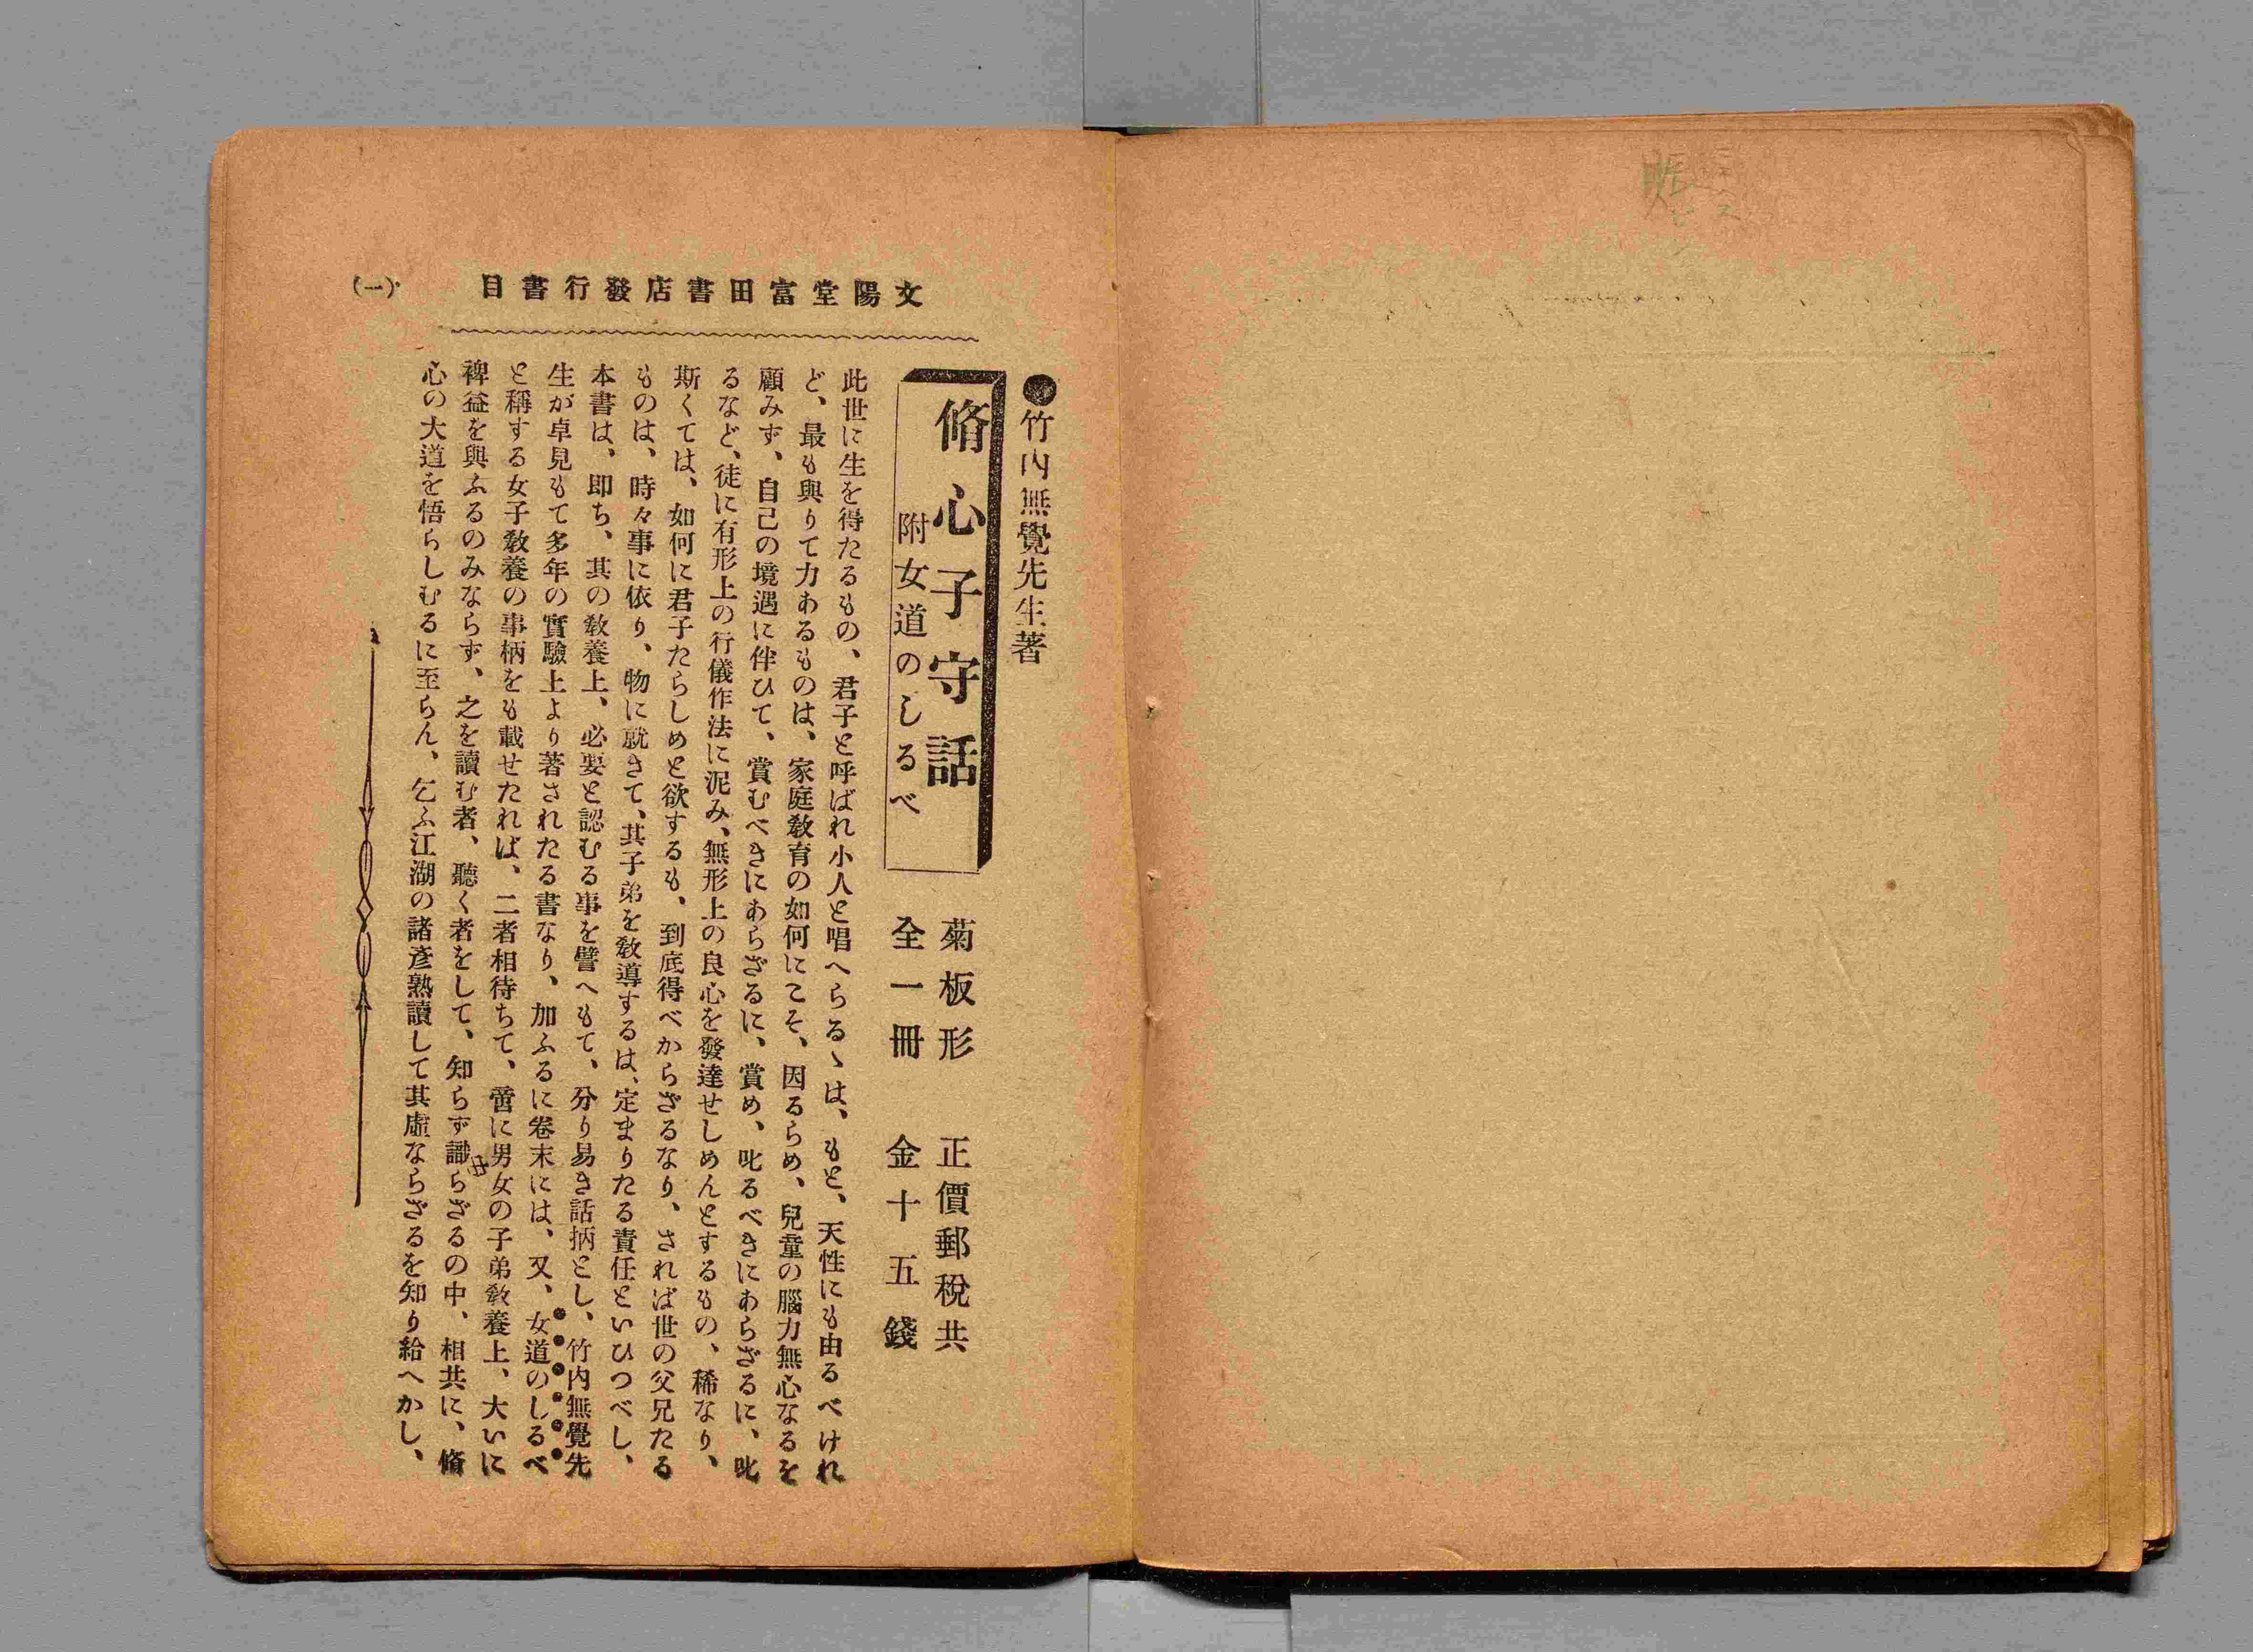 文陽堂富田書店發行書目
(一)
●竹內無覺先生著
脩心子守話
附女道のしるべ
菊板形
全一冊
正價郵稅共
金十五錢
此世に生を得たるもの、君子と呼ばれ小人と唱へらるゝは、もと、天性にも由るべけれ
ど、最も與りて力あるものは、家庭敎育の如何にこそ、因るらめ、兒童の腦力無心なるを
顧みず、自己の境遇に伴ひて、賞むべきにあらざるに、賞め、叱るべきにあらざるに、叱
るなど、徒に有形上の行儀作法に泥み、無形上の良心を發達せしめんとするもの、稀なり、
斯くては、如何に君子たらしめと欲するも、到底得べからざるなり、されば世の父兄たる
ものは、時々事に依り、物に就きて、其子弟を敎導するは、定まりたる責任といひつべし、
本書は、卽ち、其の敎養上、必要と認むる事を譬へもて、分り易き話柄とし、竹內無覺先
生が卓見もて多年の實驗上より著されたる書なり、加ふるに卷末には、又、女道のしるべ
と稱する女子敎養の事柄をも載せたれば、二者相待ちて、啻に男女の子弟敎養上、大いに
裨益を與ふるのみならず、之を讀む者、聽く者をして、知らず識らざるの中、相共に、脩
心の大道を悟らしむるに至らん、乞ふ江湖の諸彥熟讀して其虛ならざるを知り給へかし、